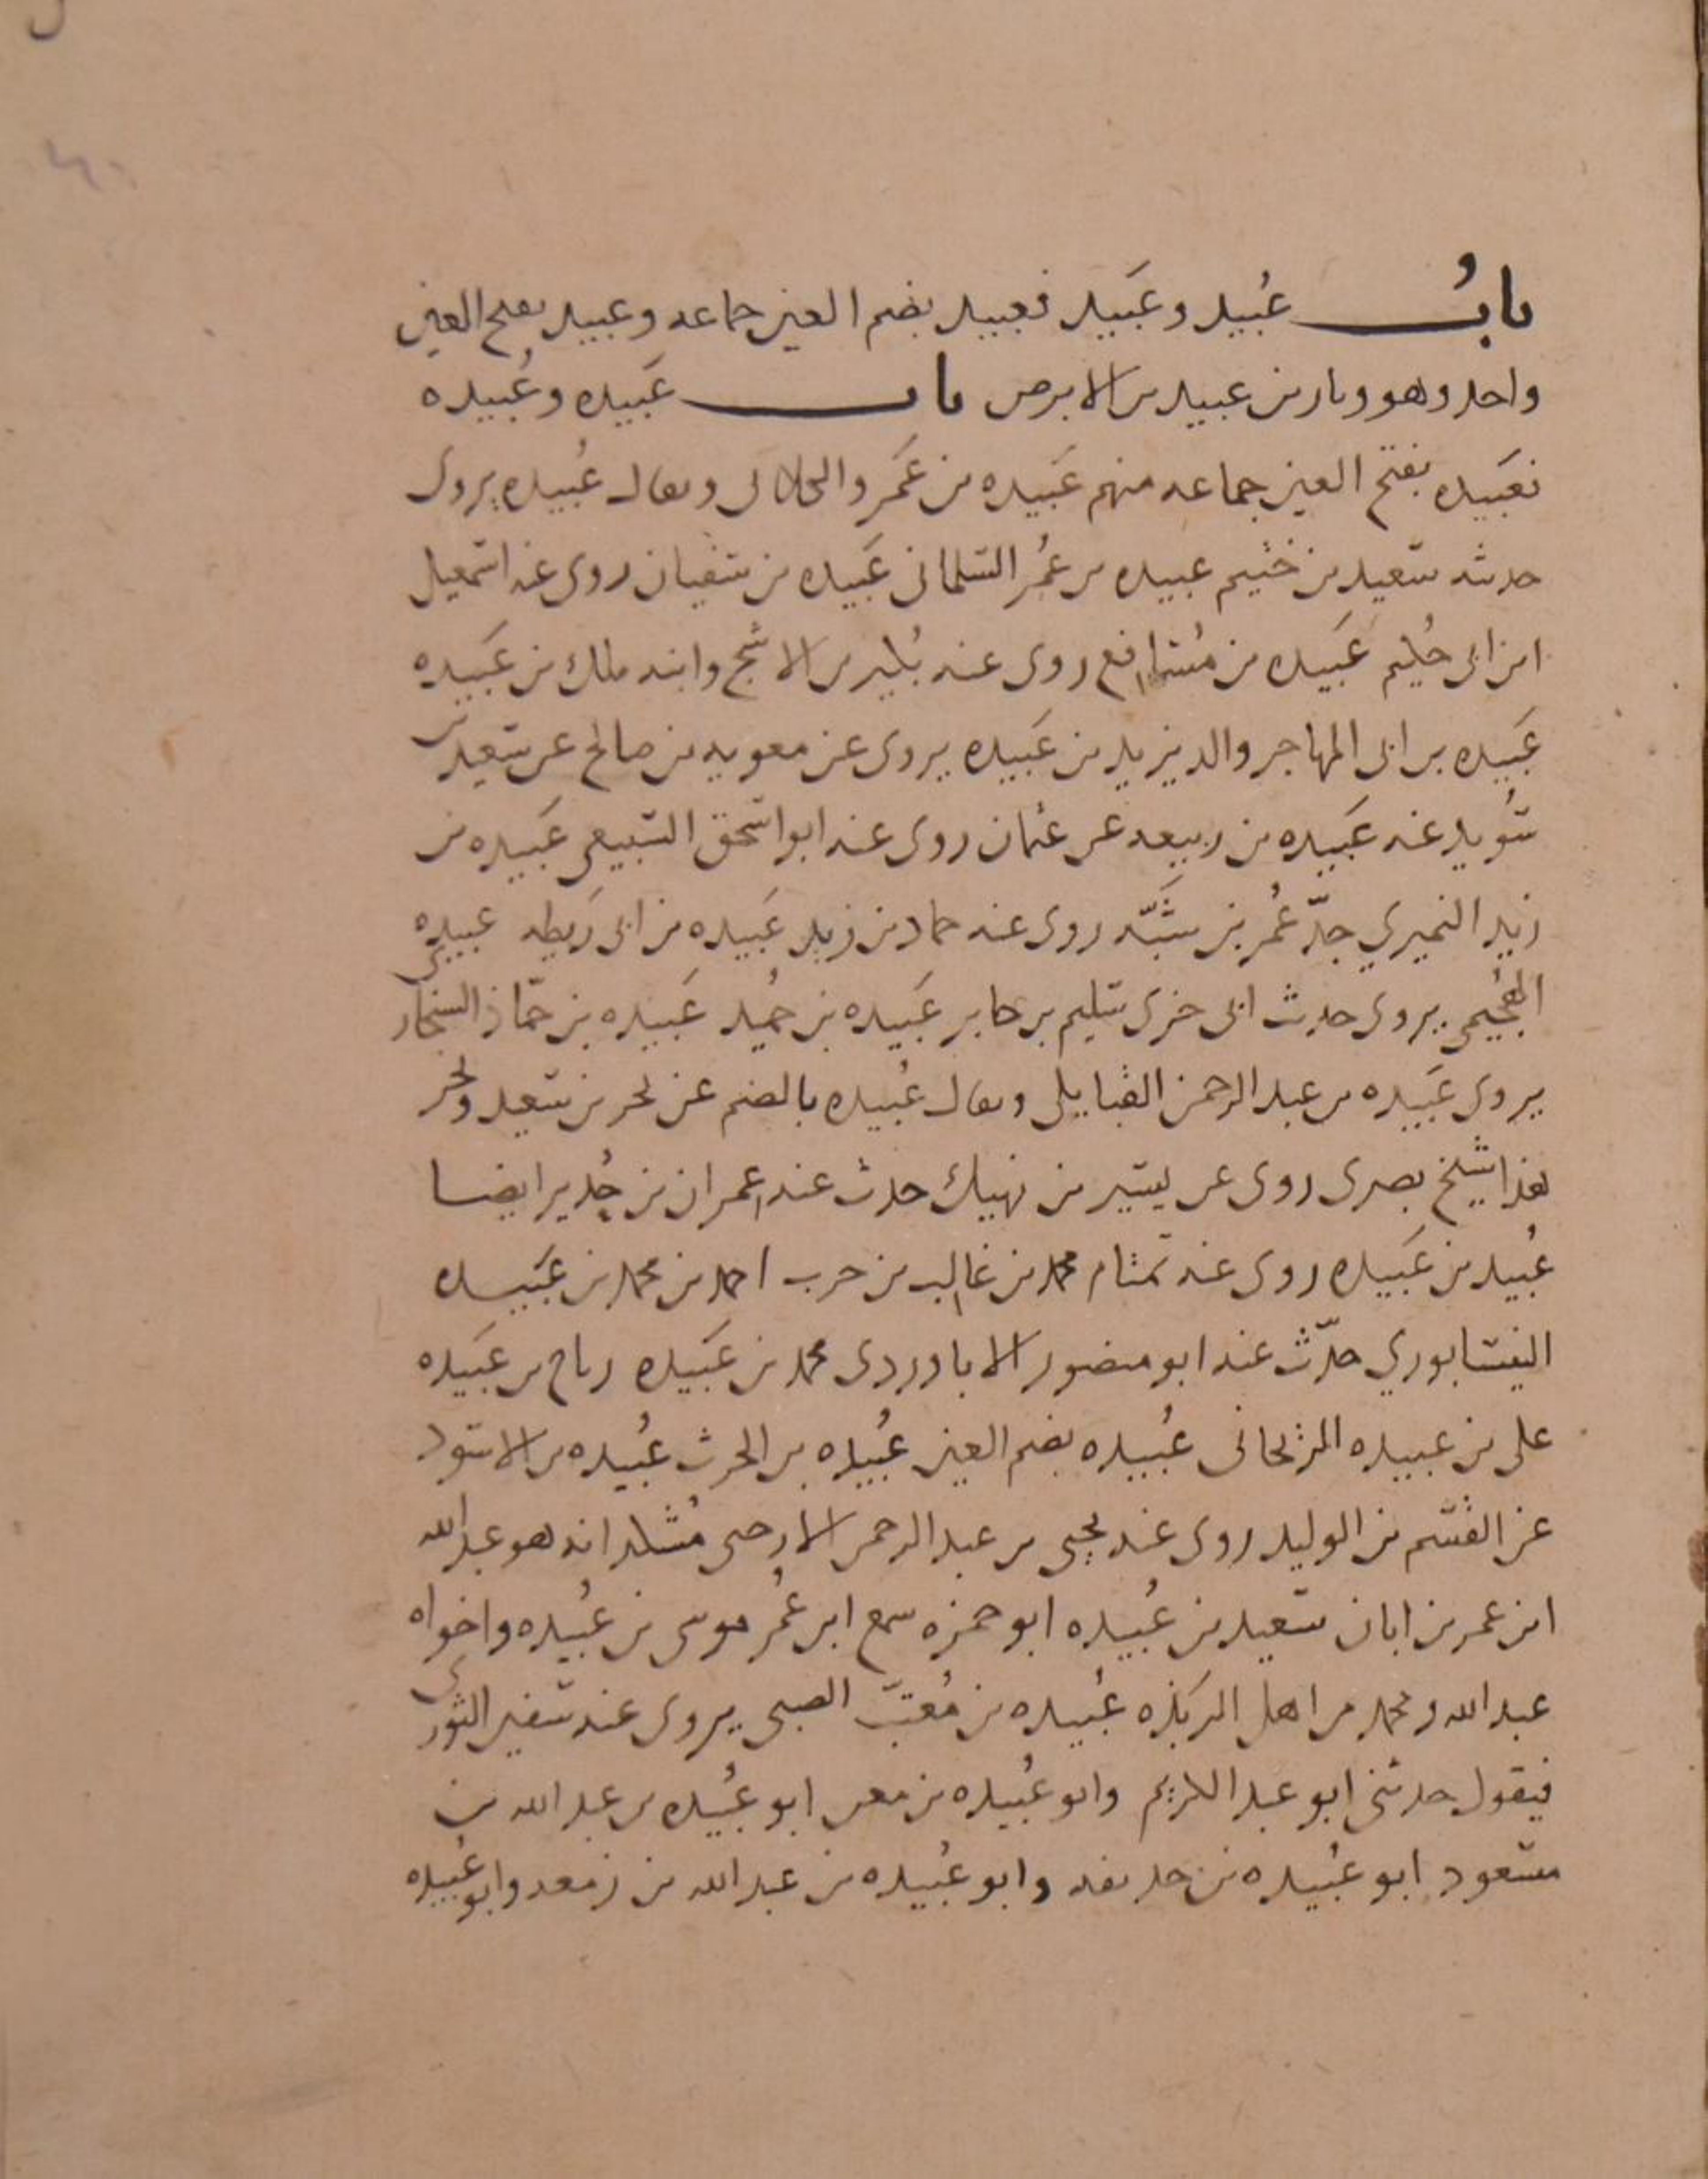 باب عُبيد وعَبيد فعبيد بضم العين جماعه وعبيد بفتح العين
واحد وهو وبار بن عبيد بن الابرص باب عَبيده وعُبيده
فعَبيده بفتح العين جماعه منهم عَبيده بن عَمرو الكلابى ويقال عُبيده يروى
حدثه سعيد بن خثيم عبيده بن عمر السلمانى عَبيده بن سفيان روى عنه اسمعيل
ابن ابى حُكيم عَبيده بن مُسافع روى عنه بُكير بن الاشج وابنه ملك بن عَبيده
عَبيده بن ابى المهاجر والد يزيد بن عَبيده يروى عن معويه بن صالح عن سعيد بن
سُويد عنه عَبيده بن ربيعه عن عثمان روى عنه ابو اسحق السبيعى عَبيده بن
زيد النميري جدّ عُمر بن شَبّه روى عنه حماد بن زيد عَبيده بن ابى رَيطه عبيده
الهُجيمى يروى حديث ابى جرى سليم بن جابر عَبيده بن حُميد عَبيده بن
يروى عَبيده بن عبد الرحمن ويقال عُبيده بالضم عن يحيى بن سعيد
هذا شيخ بصرى روى عن بشير بن نهيك حدث عنه عمران بن حُدير ايضا
عُبيد بن عَبيده روى عنه تمتام محمد بن غالب بن حرب احمد بن محمد بن عَبيده
النيسابوري حدّث عنه ابو منصور الاباوردى محمد بن عَبيده رباح بن عَبيده
على بن عبيده الريحانى عُبيده بضم العين عُبيده بن الحرث عُبيده بن الاسود
عن القسم بن الوليد روى عنه يحيى بن عبد الرحمن الارحبى مُشكدانه هو عبد الله
ابن عمر بن ابان سعيد بن عُبيده ابو حمزه سمع ابن عُمر موسى بن عُبيده واخواه
عبد الله ومحمد من اهل الرَبذه عُبيده بن مُعتب الضبى يروى عنه سفين الثورى
فيقول حدثنى ابو عبد الكريم وابو عُبيده بن معن ابو عُبيده بن عبد الله بن
مسعود ابو عُبيده بن حذيفه وابو عُبيده بن عبد الله بن زمعه وابو عُبيده